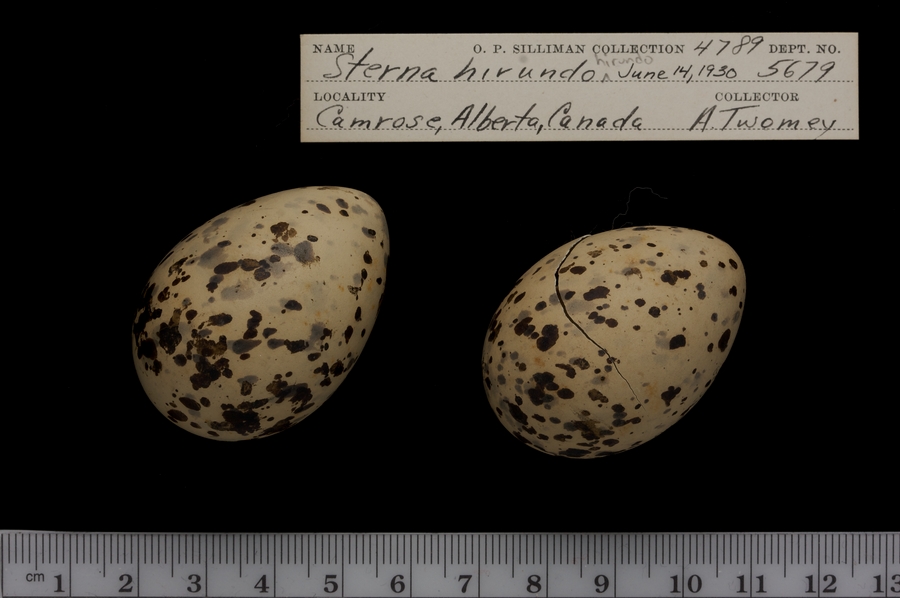 NAME O. P. SILLIMAN COLLECTION 4789 DEPT. NO.
hirundo
Sterna hirundo ^ June 14, 1930 5679
LOCALITY COLLECTOR
Camrose, Alberta, Canada A. Twomey
cm 1 2 3 4 5 6 7 8 9 10 11 12 13